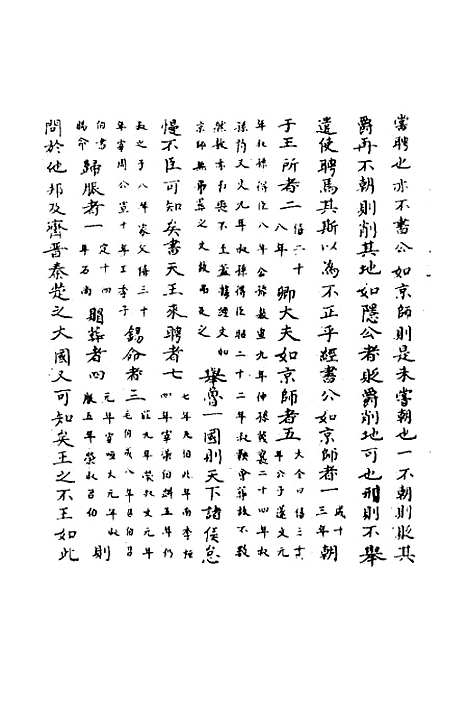 嘗聘也亦不書公如京師則是未嘗朝也一不朝則貶其
爵再不朝則削其地如隱公者貶爵削地可也刑則不舉
遣使聘焉其斯以為不正乎經書公如京師者一成十三年朝
于王所者二僖二十八年卿大夫如京師者五大全曰僖三十年公子遂文元
年叔孫得臣八年公孫敖宣九年仲孫蔑襄二十四年叔
孫豹又文九年叔孫得臣昭二十二年叔鞅會葬故不數
然敖亦不至蓋據經文如京師無弔喪之文故及之舉魯一國則天下諸侯怠
慢不臣可知矣書天王來聘者七七年凡伯九年南季桓四年宰渠伯糾五年仍
叔之子八年家父僖三十年宰周公宣十年王季子錫命者三莊元年榮叔文元年毛伯成八年召伯
歸脤者一定十四年石尚賵葬者四元年宰咺文元年叔服五年榮叔召伯則
問於他邦及齊晉秦楚之大國又可知矣王之不王如此